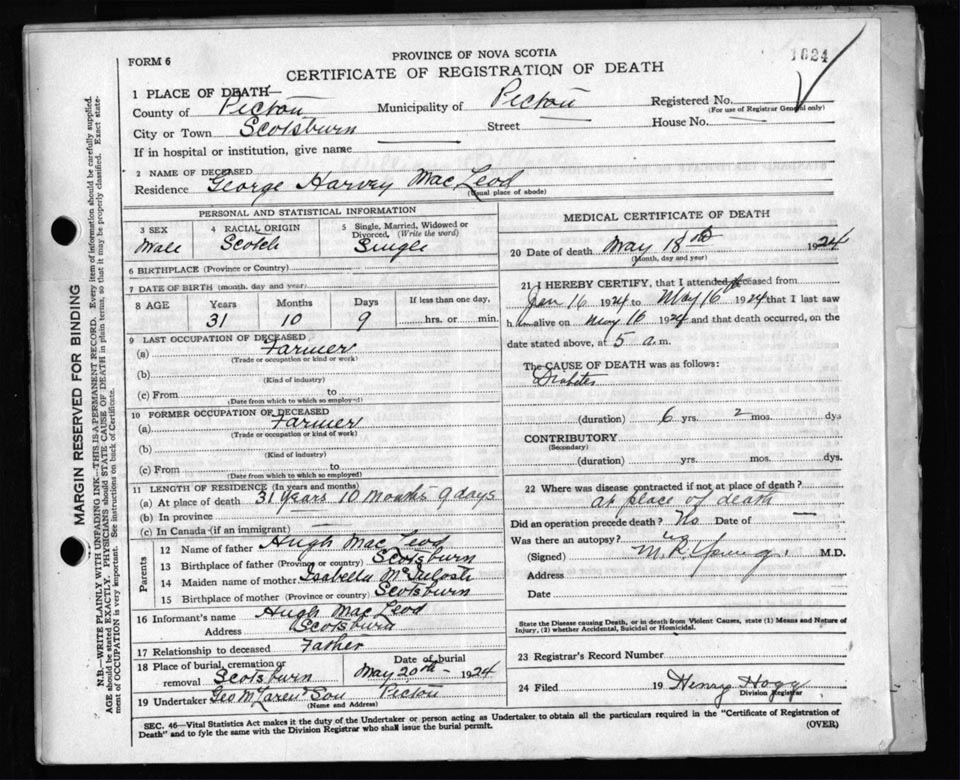 FORM 6
PROVINCE OF NOVA SCOTIA
1624
CERTIFICATE OF REGISTRATION OF DEATH
1 PLACE OF DEATH—
County of Pictou Municipality of Pictou Registered No.
(For use of Registrar General only)
City or Town Scotsburn Street House No.
If in hospital or institution, give name
2 NAME OF DECEASED George Harvey MacLeod
Residence (Usual place of abode)
PERSONAL AND STATISTICAL INFORMATION
3 SEX 4 RACIAL ORIGIN 5 Single, Married, Widowed or Divorced. (Write the word)
Male Scotch Single
6 BIRTHPLACE (Province or Country)
7 DATE OF BIRTH (month, day and year)
8 AGE Years Months Days If less than one day,
31 10 9 hrs. or min.
9 LAST OCCUPATION OF DECEASED
(a) Farmer
(Trade or occupation or kind or work)
(b)
(Kind of industry)
(c) From to
(Date from which to which so employed)
10 FORMER OCCUPATION OF DECEASED
(a) Farmer
(Trade or occupation or kind of work)
(b)
(Kind of industry)
(c) From to
(Date from which to which so employed)
11 LENGTH OF RESIDENCE (In years and months)
(a) At place of death 31 years 10 months 9 days
(b) In province
(c) In Canada (if an immigrant)
Parents
12 Name of father Hugh MacLeod
13 Birthplace of father (Province or country) Scotsburn
14 Maiden name of mother Isabella McIntosh
15 Birthplace of mother (Province or country) Scotsburn
16 Informant's name Hugh MacLeod
Address Scotsburn
17 Relationship to deceased Father
18 Place of burial, cremation or removal Scotsburn Date of burial May 20th 1924
19 Undertaker Geo McLaren Son Pictou
(Name and Address)
MEDICAL CERTIFICATE OF DEATH
20 Date of death May 18th 1924
(Month, day and year)
21 I HEREBY CERTIFY, that I attended deceased from
Jan 16 1924 to May 16 1924 that I last saw
h im alive on May 16 1924 and that death occurred, on the
date stated above, at 5 a.m.
The CAUSE OF DEATH was as follows:
Diabetes
(duration) 6 yrs. 2 mos. dys
CONTRIBUTORY
(Secondary)
(duration) yrs. mos. dys.
22 Where was disease contracted if not at place of death?
at place of death
Did an operation precede death? No Date of
Was there an autopsy? no
(Signed) M.R. Young M.D.
Address
Date
State the Disease causing Death, or in death from Violent Causes, state (1) Means and Nature of
Injury, (2) whether Accidental, Suicidal or Homicidal.
23 Registrar's Record Number
24 Filed 19 Henry Hogg
Division Registrar
SEC. 46—Vital Statistics Act makes it the duty of the Undertaker or person acting as Undertaker to obtain all the particulars required in the "Certificate of Registration of
Death" and to fyle the same with the Division Registrar who shall issue the burial permit. (OVER)
MARGIN RESERVED FOR BINDING
N.B.—WRITE PLAINLY WITH UNFADING INK—THIS IS A PERMANENT RECORD. Every item of information should be carefully supplied.
AGE should be stated EXACTLY. PHYSICIANS should STATE CAUSE OF DEATH in plain terms, so that it may be properly classified. Exact state-
ment of OCCUPATION is very important. See instructions on back of Certificate.